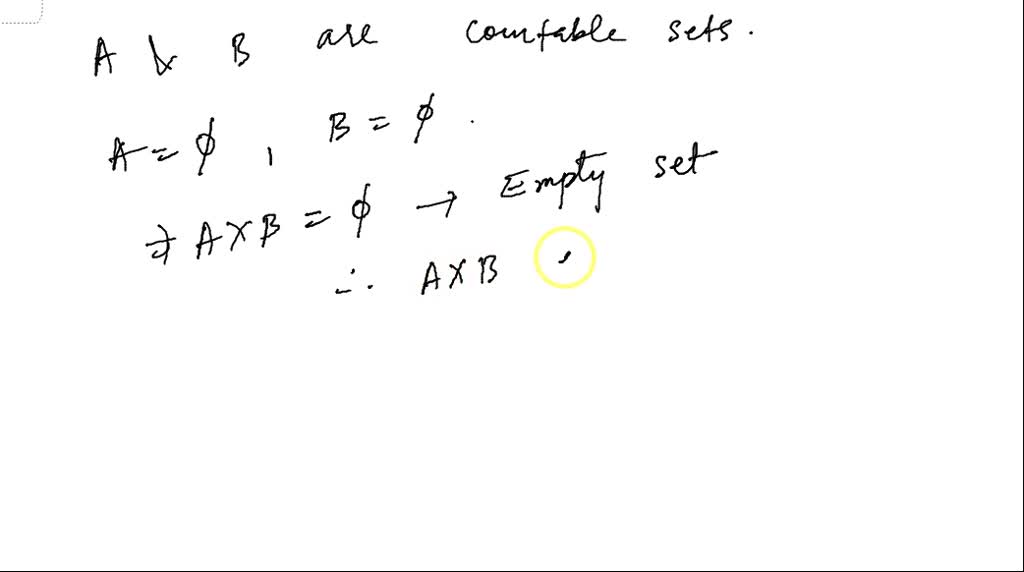 A & B are countable sets.
A = ϕ , B = ϕ .
⇒ A X B = ϕ → Empty set
∴ A X B